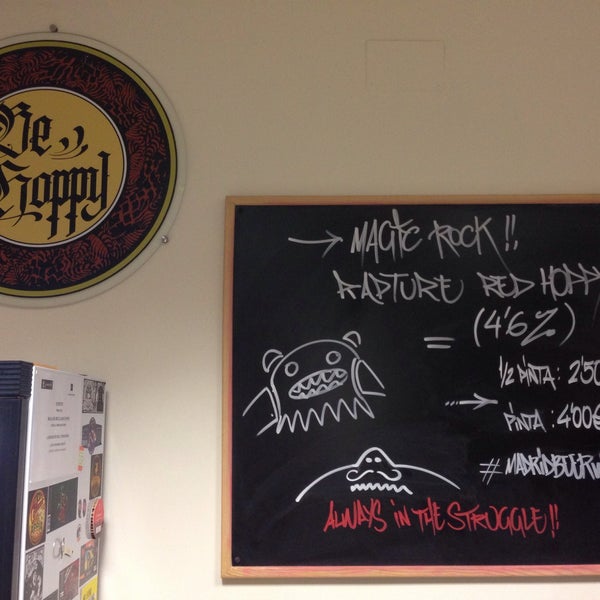 Be
Hoppy
→ MAGIC ROCK !!
RAPTURE RED HOPPY
= (4'6%)
1/2 PINTA: 2'50
PINTA: 4'00€
ALWAYS IN THE STRUGGLE!!